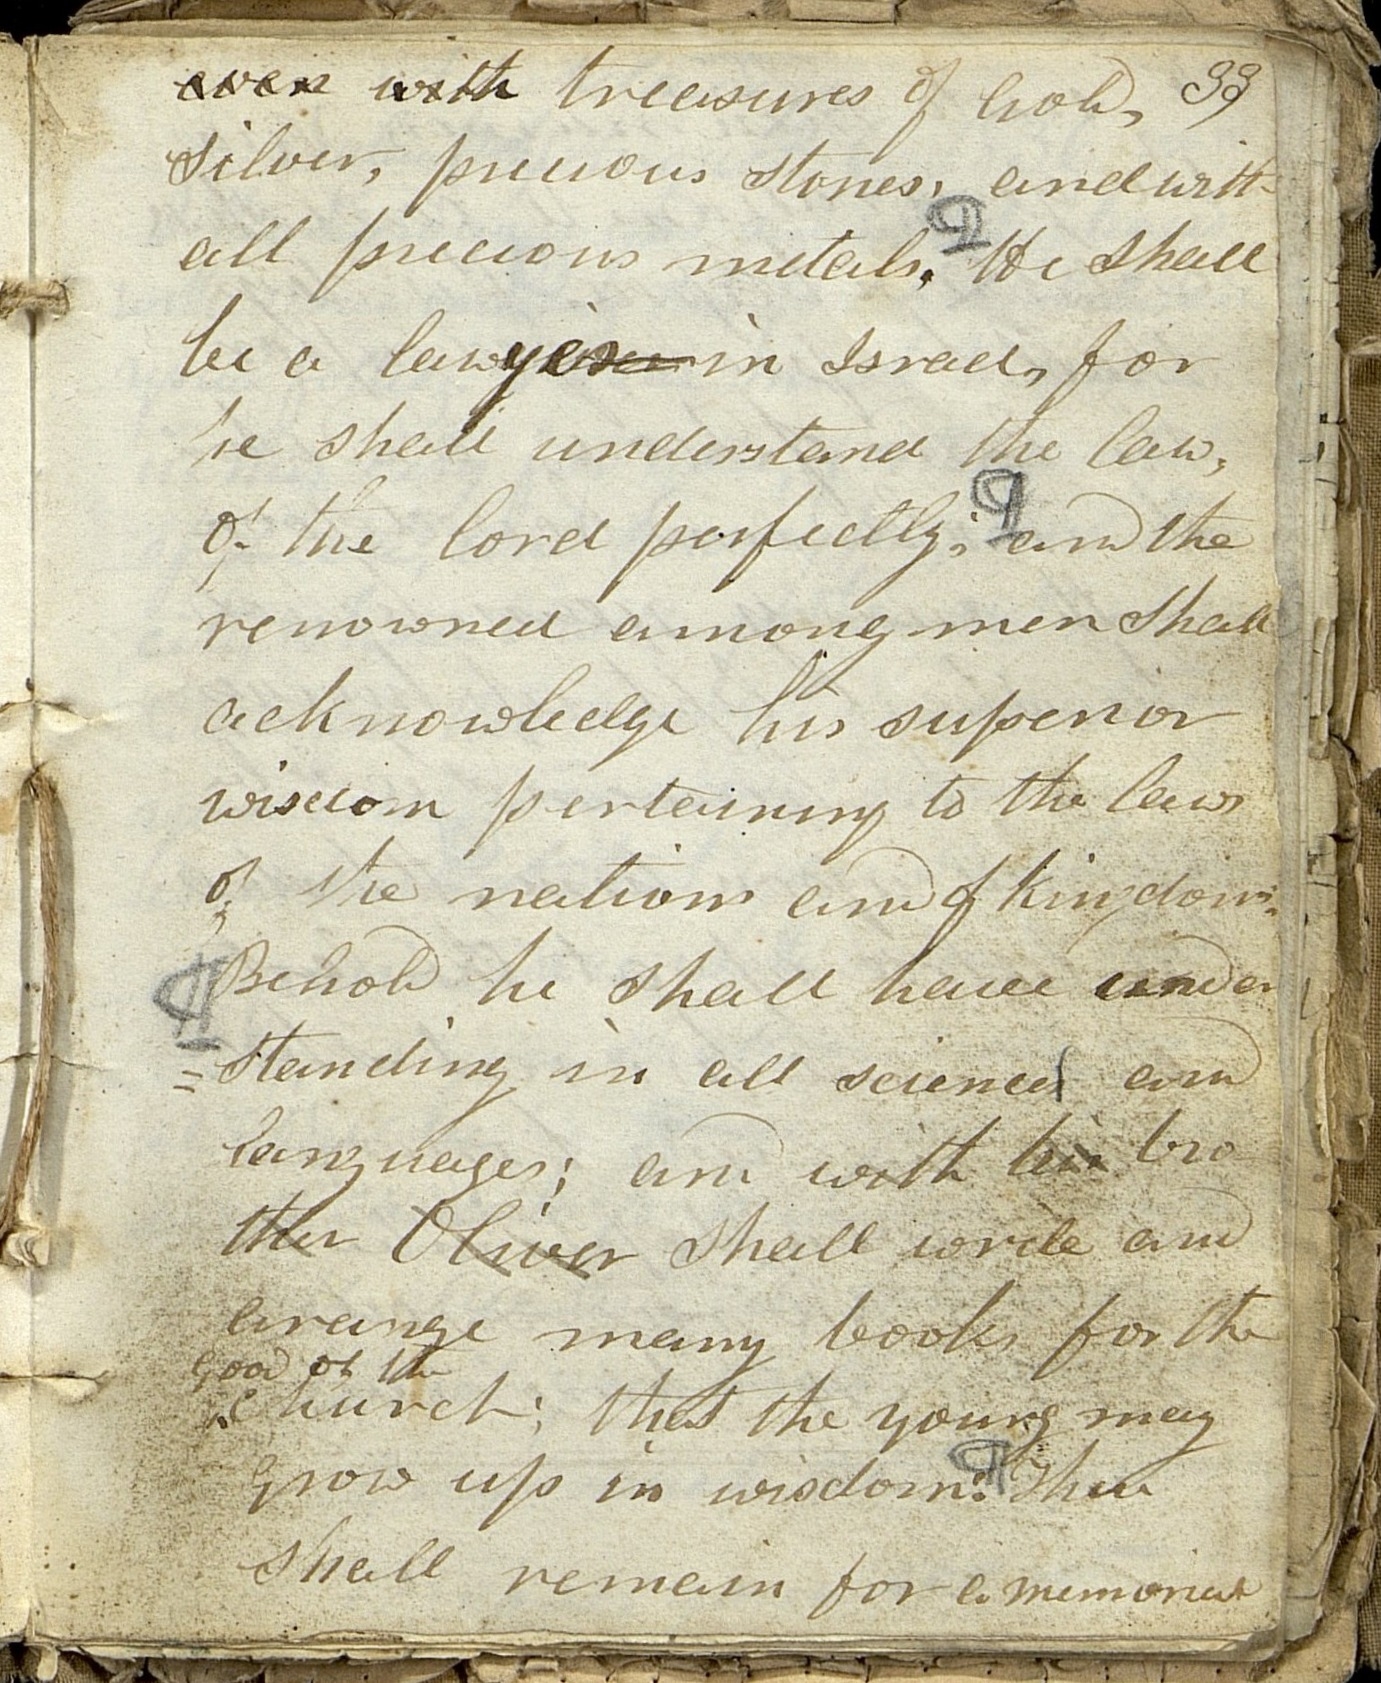 even with treasures of gold, 33
silver, precious stones, and with
all precious metals. ¶ He shall
be a lawyer in Israel, for
he shall understand the law,
of the lord perfectly; ¶ and the
renowned among men shall
acknowledge his superior
wisdom pertaining to the laws
of the nations and of kingdoms.
¶ Behold he shall have under
=standing in all sciences and
languages; and with his bro
ther Oliver shall write and
arange many books for the
good of the
church; that the young may
grow up in wisdom: ¶ These
shall remain for a memorial